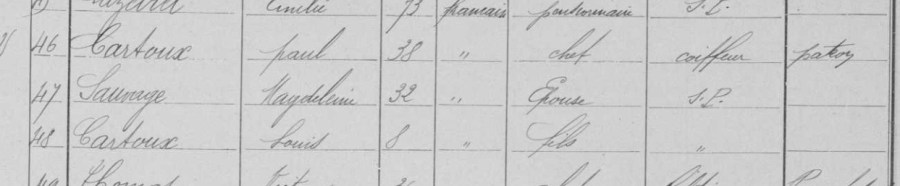 73 francais pensionnaire S.P.
46 Cartoux paul 38 " chef coiffeur patron
47 Sauvage Magdeleine 32 " Epouse S.P.
48 Cartoux Louis 8 " fils "
49